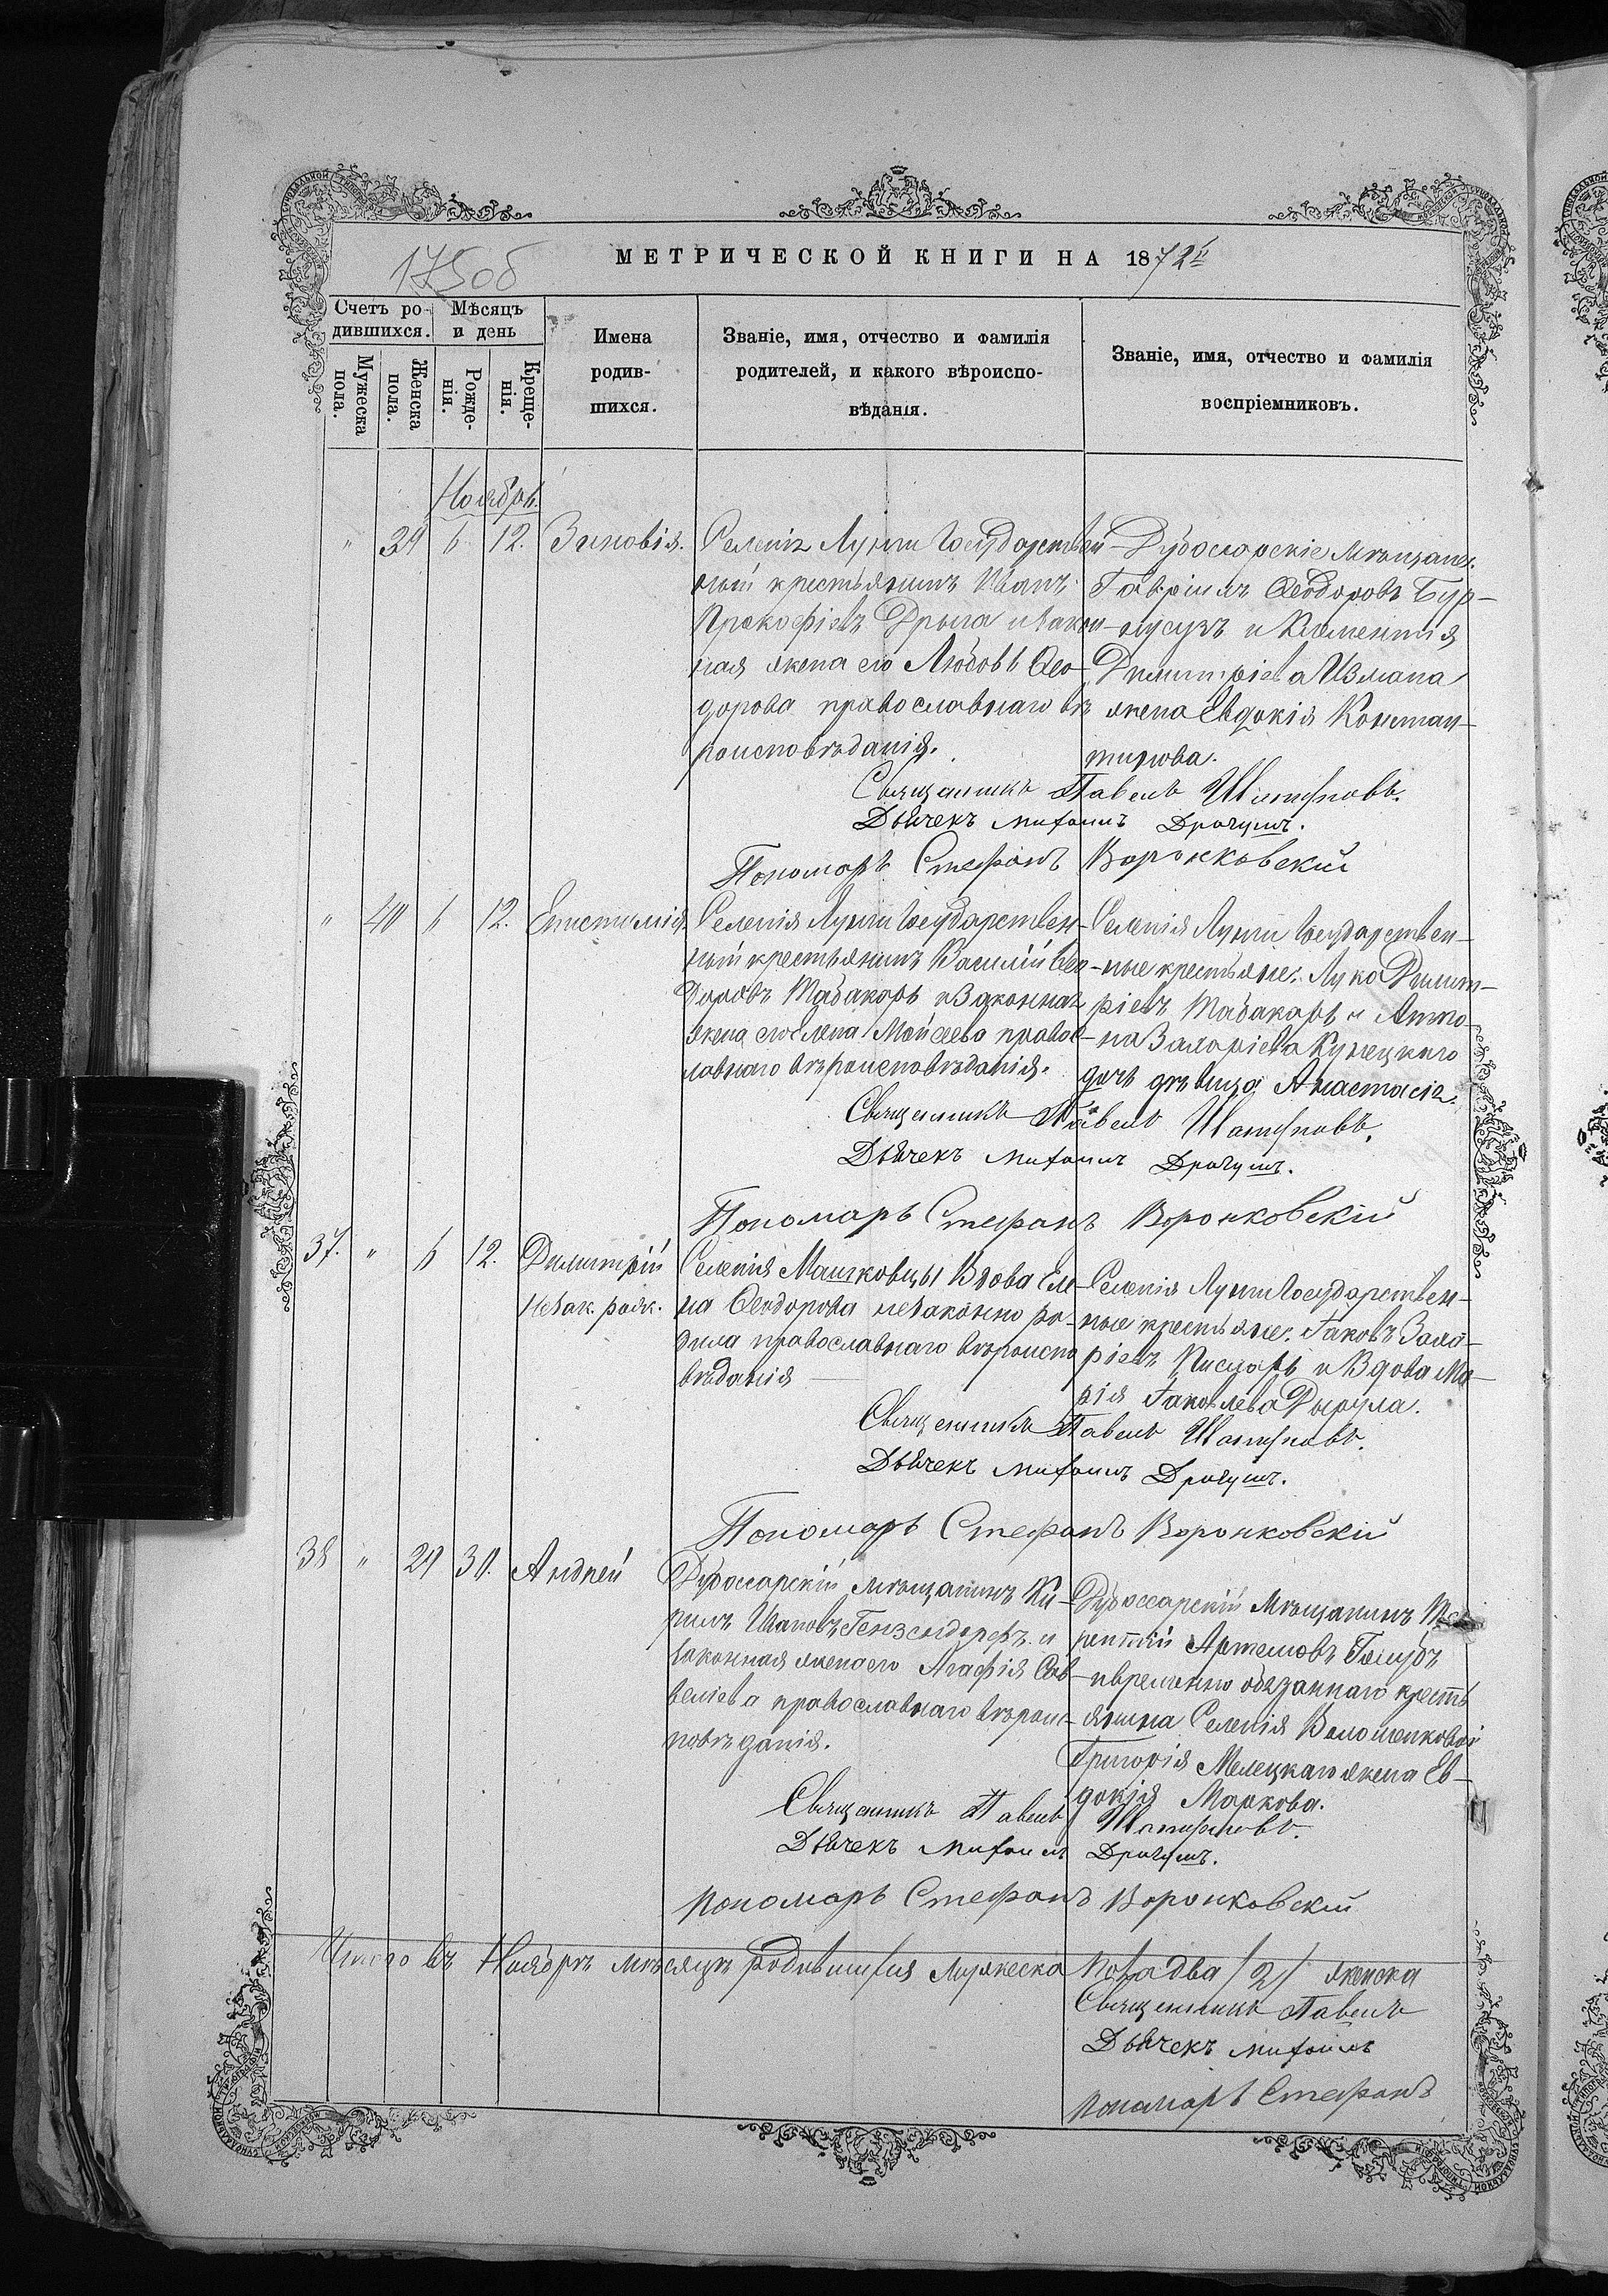 175об
МЕТРИЧЕСКОЙ КНИГИ НА 1872й
Счетъ ро-
дившихся.
Мѣсяцъ
и день
Имена
родив-
шихся.
Званіе, имя, отчество и фамилія
родителей, и какого вѣроиспо-
вѣданія.
Званіе, имя, отчество и фамилія
воспріемниковъ.
Мужеска
пола.
Женска
пола.
Рожде-
нія.
Креще-
нія.
Ноябрь.
" 39 6 12. Зиновія.
Селенія Лунги Государствен-
ный крестьянинъ Иванъ
Прокофіевъ Дрыга и закон-
ная жена его Любовь Ѳео-
дорова православнаго вѣ-
роисповѣданія.
Дубоссарскіе мѣщане.
Гавріилъ Ѳеодоровъ Бур-
и Климентія
Димитріева Измана
жена Евдокія Констан-
тинова.
Священникъ Павелъ
Дьячекъ Михаилъ Драгушъ.
Пономарь Стефанъ Воронковскій
" 40 6 12. Епистимія
Селенія Лунги Государствен-
ный крестьянинъ Василій Ѳео-
доровъ Табакарь и законная
жена его Елена Мойсеева правос-
лавнаго вѣроисповѣданія.
Селенія Лунги Государствен-
ные крестьяне: Лука Димит-
ріевъ Табакарь и Анто-
на Захаріева Кунецкаго
дочь дѣвица Анастасія.
Священникъ Павелъ
Дьячекъ Михаилъ Драгушъ.
Пономарь Стефанъ Воронковскій
37. " 6 12. Димитрій
Незак. рож.
Селенія Машковцы Вдова Еле-
на Ѳеодорова незаконно ро-
дила православнаго вѣроиспо
вѣданія
Селенія Лунги Государствен-
ные крестьяне: Іаковъ Заха-
ріевъ Писарь и Вдова Ма-
рія Іаковлева
Священникъ Павелъ
Дьячекъ Михаилъ Драгушъ.
Пономарь Стефанъ Воронковскій
38 " 29 30. Андрей
Дубоссарскій мѣщанинъ Ки-
рилъ Ивановъ и
законная жена его Агафія Сав-
веліева православнаго вѣроис-
повѣданія.
Дубоссарскій Мѣщанинъ Те-
рентій Артемовъ Голубъ
и временно обязаннаго кресть
янина Селенія
Григорія Мелецкаго жена Ев-
докія Маркова.
Священникъ Павелъ
Дьячекъ Михаилъ Драгушъ.
Пономарь Стефанъ Воронковскій
Итого въ Ноябрѣ мѣсяцѣ родившихся мужеска пола два /2/ женска
Священникъ Павелъ
Дьячекъ Михаилъ
Пономарь Стефанъ